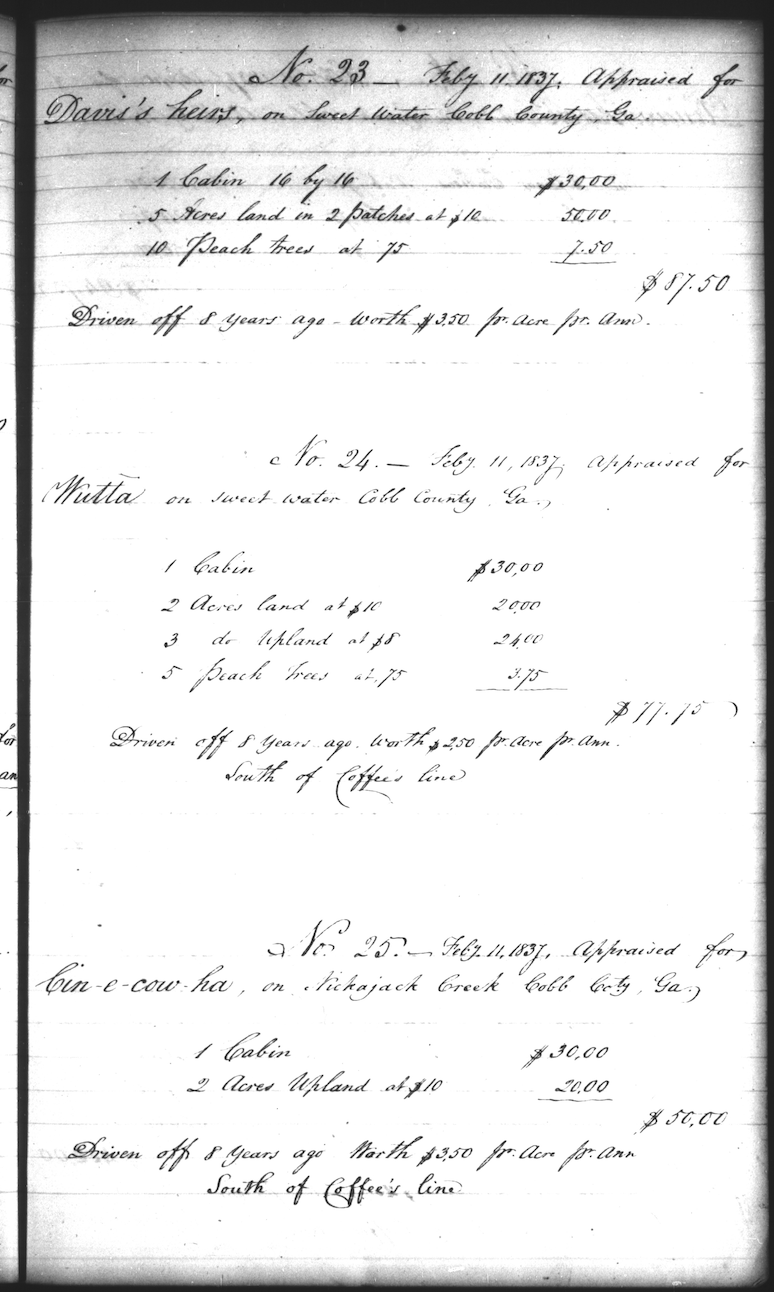 No. 23 — Feby 11. 1837, Appraised for
Davis's heirs, on Sweet Water Cobb County, Ga.
1 Cabin 16 by 16 $30,00
5 Acres land in 2 patches at $10 50.00
10 Peach trees at 75 7.50
$87.50
Driven off 8 years ago - Worth $3.50 pr. Acre pr. Ann.
No. 24. — Feby. 11, 1837, Appraised for
Wutta on sweet water Cobb County, Ga.,
1 Cabin $30,00
2 Acres land at $10 20,00
3 do Upland at $8 24,00
5 Peach trees at 75 3.75
$77.75
Driven off 8 years ago. Worth $2,50 pr. Acre pr. Ann.
South of Coffee's line
No. 25. — Feby. 11, 1837, Appraised for
Cin-e-cow-ha, on Nickajack Creek Cobb Coty, Ga.,
1 Cabin $30,00
2 Acres Upland at $10 20,00
$50,00
Driven off 8 years ago Worth $3,50 pr. Acre pr. Ann
South of Coffee's line